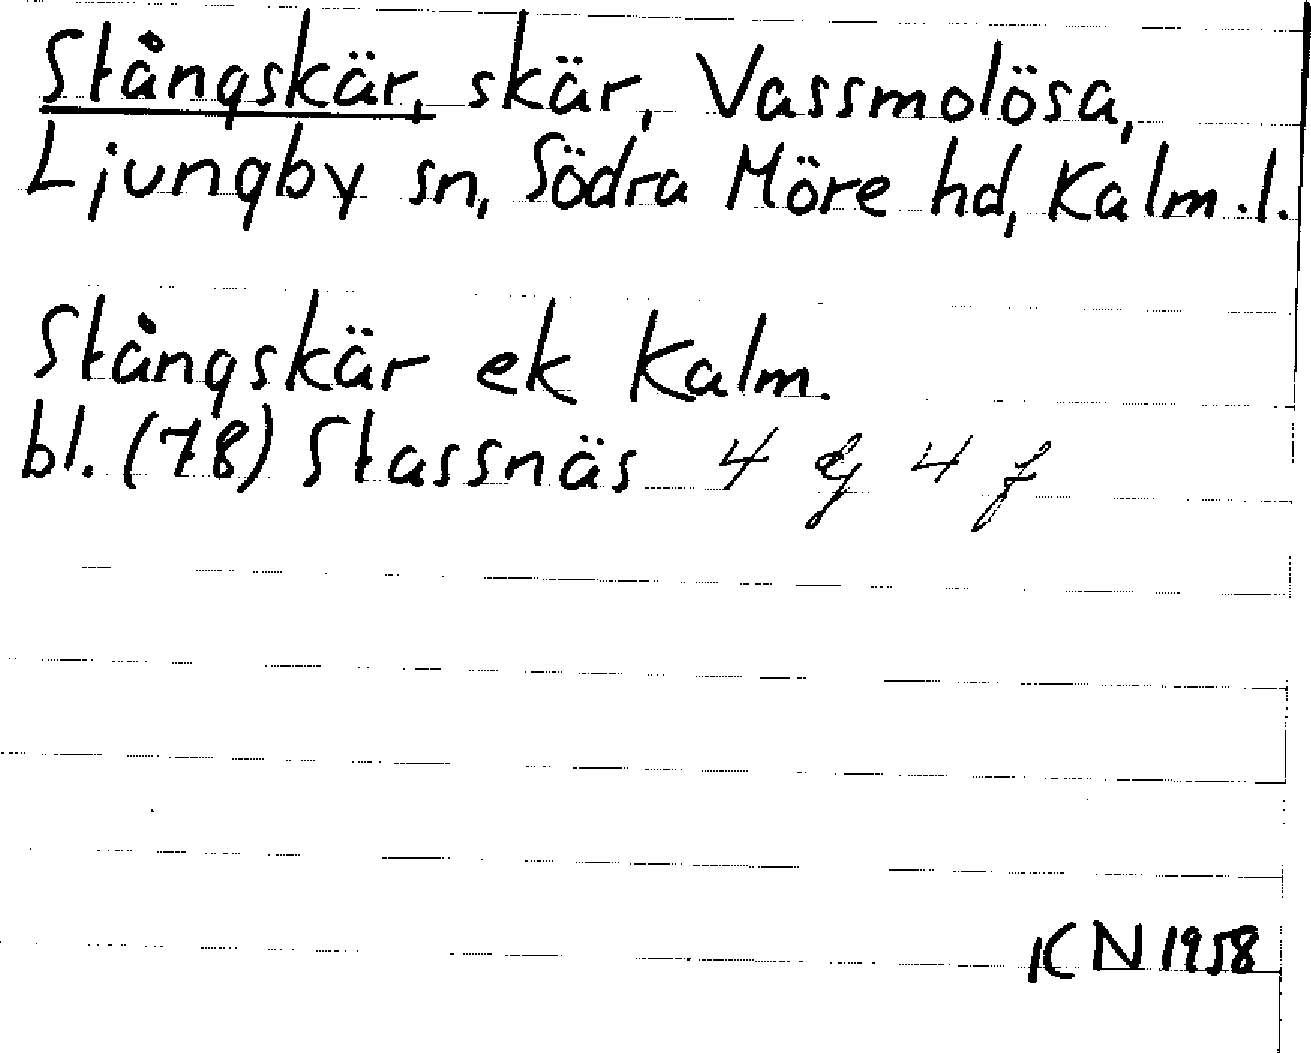 Stångskär, skär, Vassmolösa,
Ljungby sn, Södra Möre hd, Kalm.l.
Stångskär ek Kalm.
bl. (78) Stassnäs 4 g 4 f
KN 1958